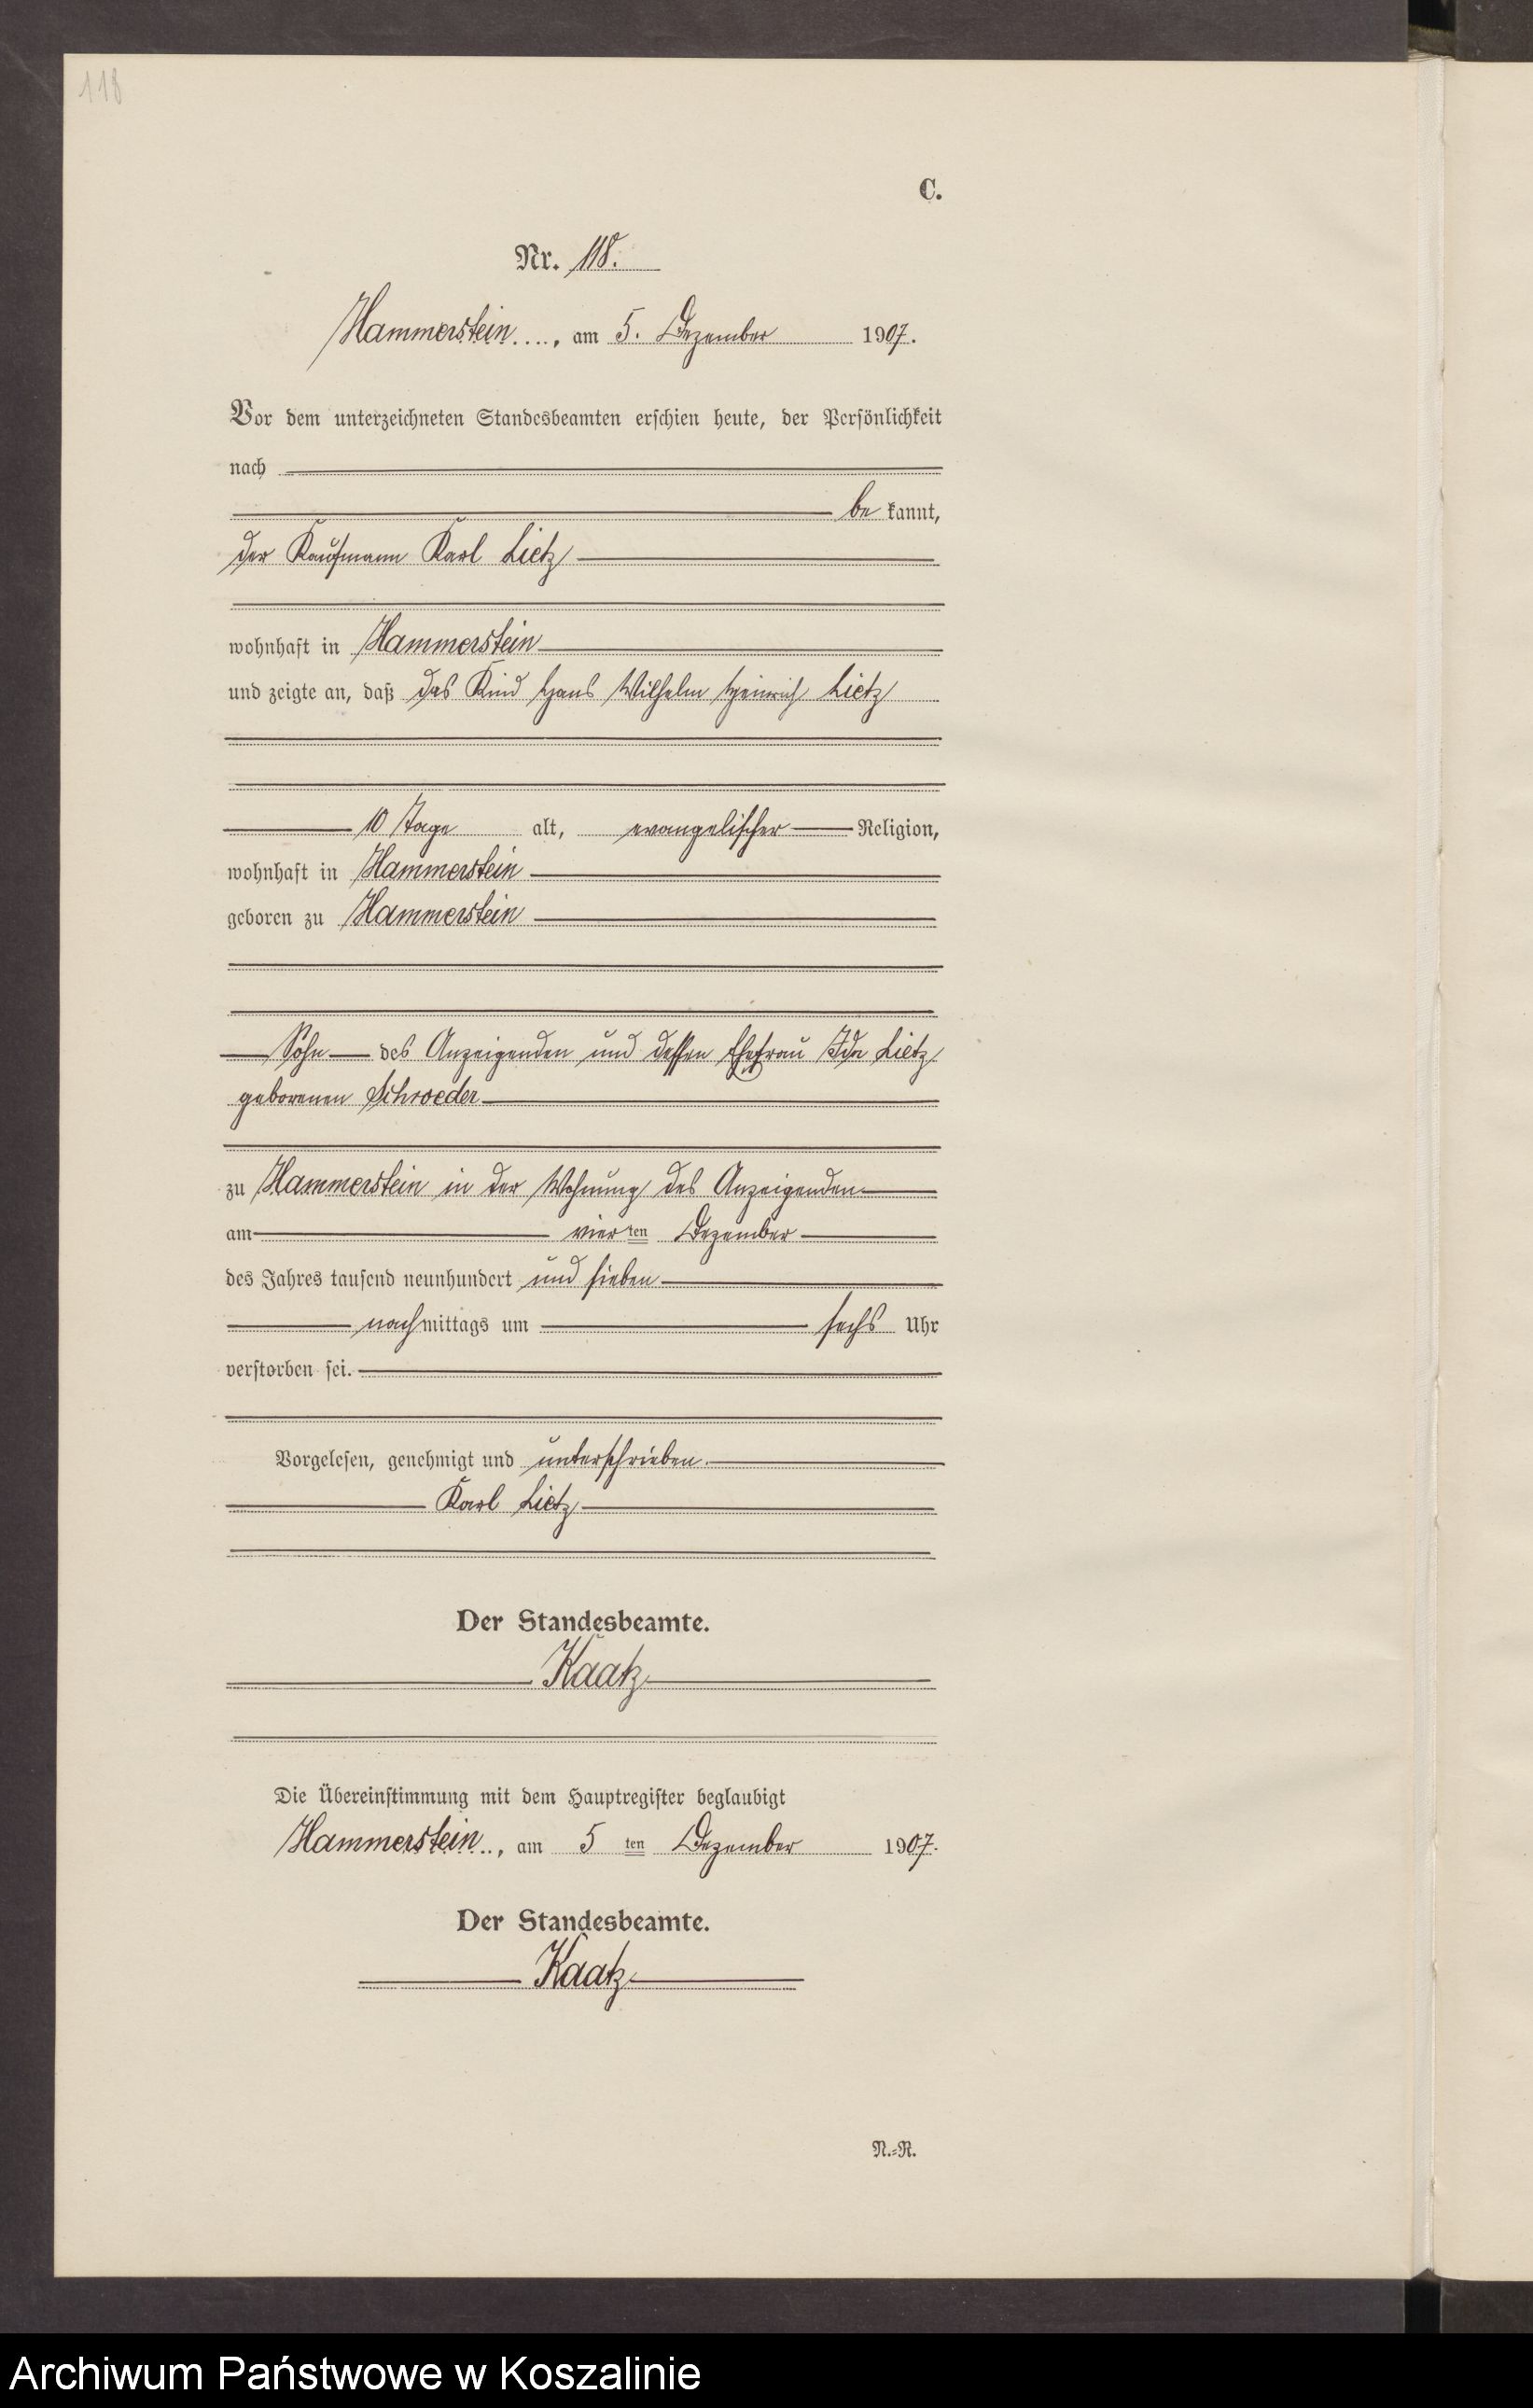 118
C.
Nr. 118.
Hammerstein...., am 5. Dezember 1907.
Vor dem unterzeichneten Standesbeamten erschien heute, der Persönlichkeit
nach
be kannt,
der Kaufmann Karl Lietz
wohnhaft in Hammerstein
und zeigte an, daß das Kind Hans Wilhelm Heinrich Lietz
10 Tage alt, evangelischer Religion,
wohnhaft in Hammerstein
geboren zu Hammerstein
Sohn des Anzeigenden und dessen Ehefrau Ida Lietz
geborenen Schroeder
zu Hammerstein in der Wohnung des Anzeigenden
am vier ten Dezember
des Jahres tausend neunhundert und sieben
nachmittags um sechs Uhr
verstorben sei.
Vorgelesen, genehmigt und unterschrieben.
Karl Lietz
Der Standesbeamte.
Kaatz
Die Übereinstimmung mit dem Hauptregister beglaubigt
Hammerstein.., am 5 ten Dezember 1907.
Der Standesbeamte.
Kaatz
N.=R.
Archiwum Państwowe w Koszalinie